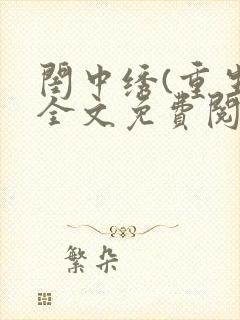 閨中绣(重生
全文免費閱
繁朵